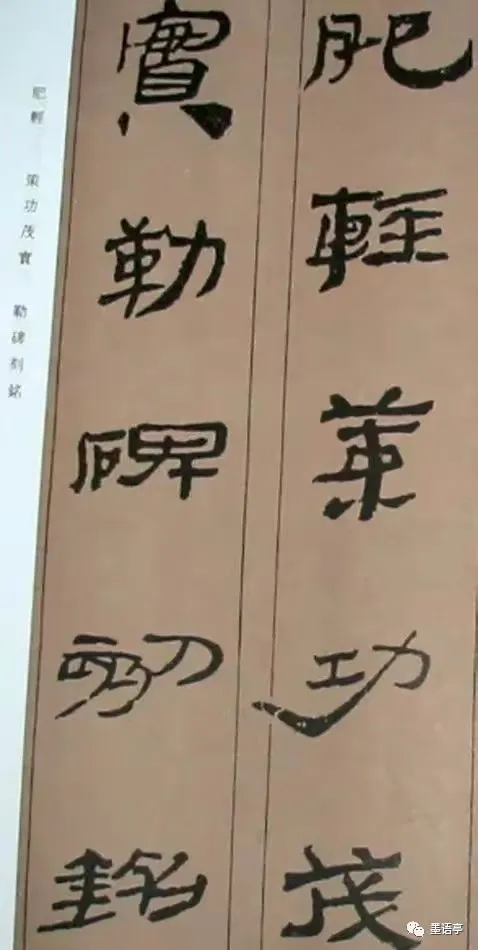 肥輕策功茂
實勒碑刻銘
肥輕 策功茂實 勒碑刻銘
墨语亭